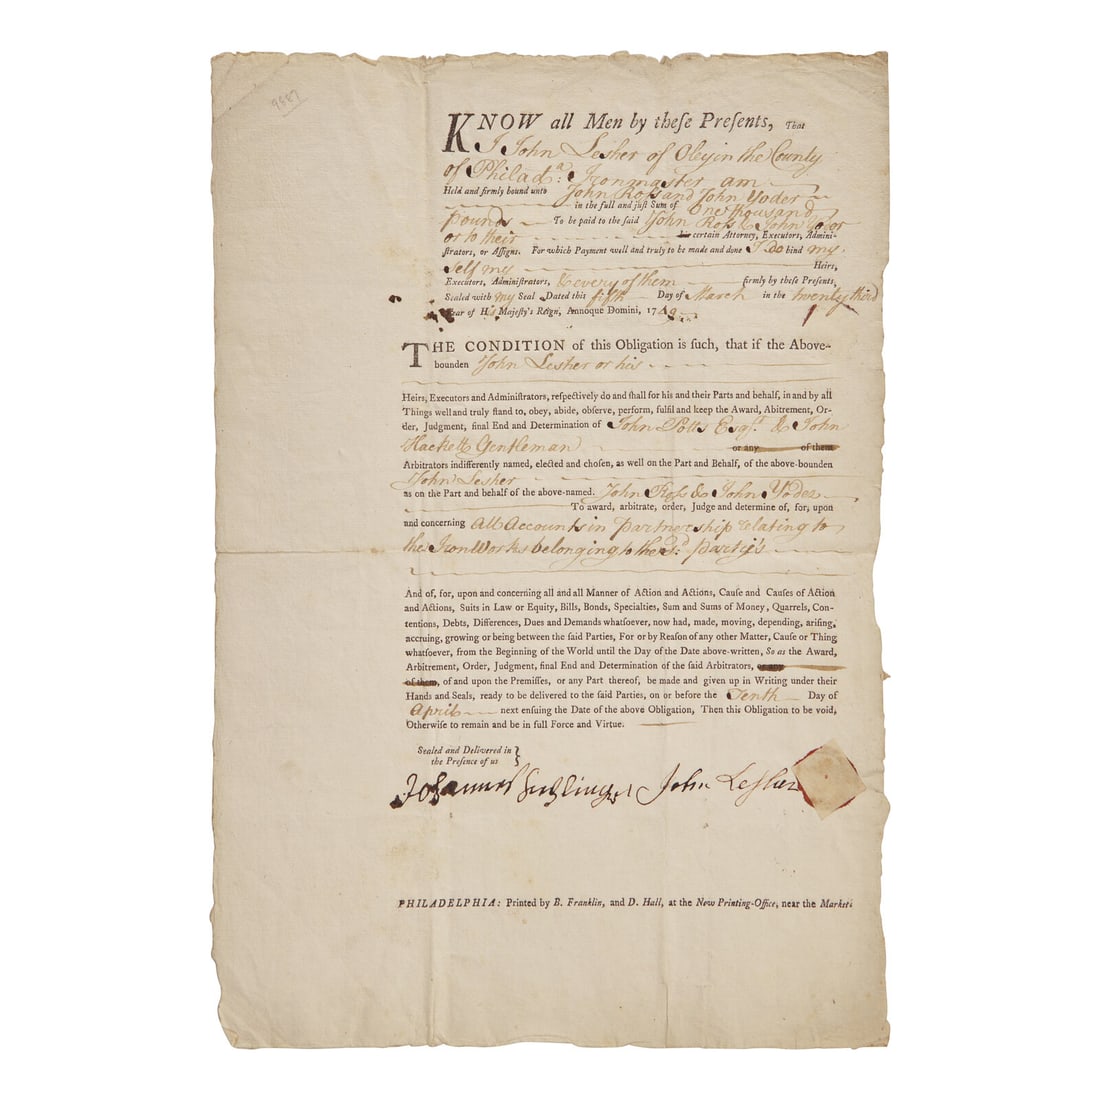 9887
KNOW all Men by theſe Preſents, That
I John Lesher of Oley in the County
of Philada: Ironmaster am
Held and firmly bound unto John Ross and John Yoder
in the full and juſt Sum of One thousand
pounds To be paid to the ſaid John Ross & John Yoder
or to their certain Attorney, Executors, Admini-
ſtrators, or Aſſigns. For which Payment well and truly to be made and done I do bind my
self my Heirs,
Executors, Adminiſtrators, & every of them firmly by theſe Preſents,
Sealed with my Seal Dated this fifth Day of March in the twenty third
Year of His Majeſty's Reign, Annoque Domini, 1749
THE CONDITION of this Obligation is ſuch, that if the Above-
bounden John Lesher or his
Heirs, Executors and Adminiſtrators, reſpectively do and ſhall for his and their Parts and behalf, in and by all
Things well and truly ſtand to, obey, abide, obſerve, perform, fulfil and keep the Award, Abitrement, Or-
der, Judgment, final End and Determination of John Potts Esqr. & John
Hackett Gentleman or any of them
Arbitrators indifferently named, elected and choſen, as well on the Part and Behalf, of the above-bounden
John Lesher
as on the Part and behalf of the above-named. John Ross & John Yoder
To award, arbitrate, order, Judge and determine of, for, upon
and concerning All Accounts in partnership relating to
the Iron Works belonging to the sd. party's
And of, for, upon and concerning all and all Manner of Action and Actions, Cauſe and Cauſes of Action
and Actions, Suits in Law or Equity, Bills, Bonds, Specialties, Sum and Sums of Money, Quarrels, Con-
tentions, Debts, Differences, Dues and Demands whatſoever, now had, made, moving, depending, ariſing,
accruing, growing or being between the ſaid Parties, For or by Reaſon of any other Matter, Cauſe or Thing
whatſoever, from the Beginning of the World until the Day of the Date above-written, So as the Award,
Arbitrement, Order, Judgment, final End and Determination of the ſaid Arbitrators, or any
of them, of and upon the Premiſſes, or any Part thereof, be made and given up in Writing under their
Hands and Seals, ready to be delivered to the ſaid Parties, on or before the Tenth Day of
April next enſuing the Date of the above Obligation, Then this Obligation to be void,
Otherwiſe to remain and be in full Force and Virtue.
Sealed and Delivered in
the Preſence of us
John Lesher
PHILADELPHIA: Printed by B. Franklin, and D. Hall, at the New Printing-Office, near the Market.